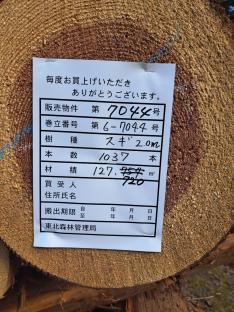 毎度お買上げいただき
ありがとうございます。
販売物件 第 7044 号
巻立番号 第 6-7044 号
樹種 スギ 2.0m
本数 1037 本
材積 127.754 ㎥
720
買受人
住所氏名
搬出期限 自 年 月 日
至 年 月 日
東北森林管理局